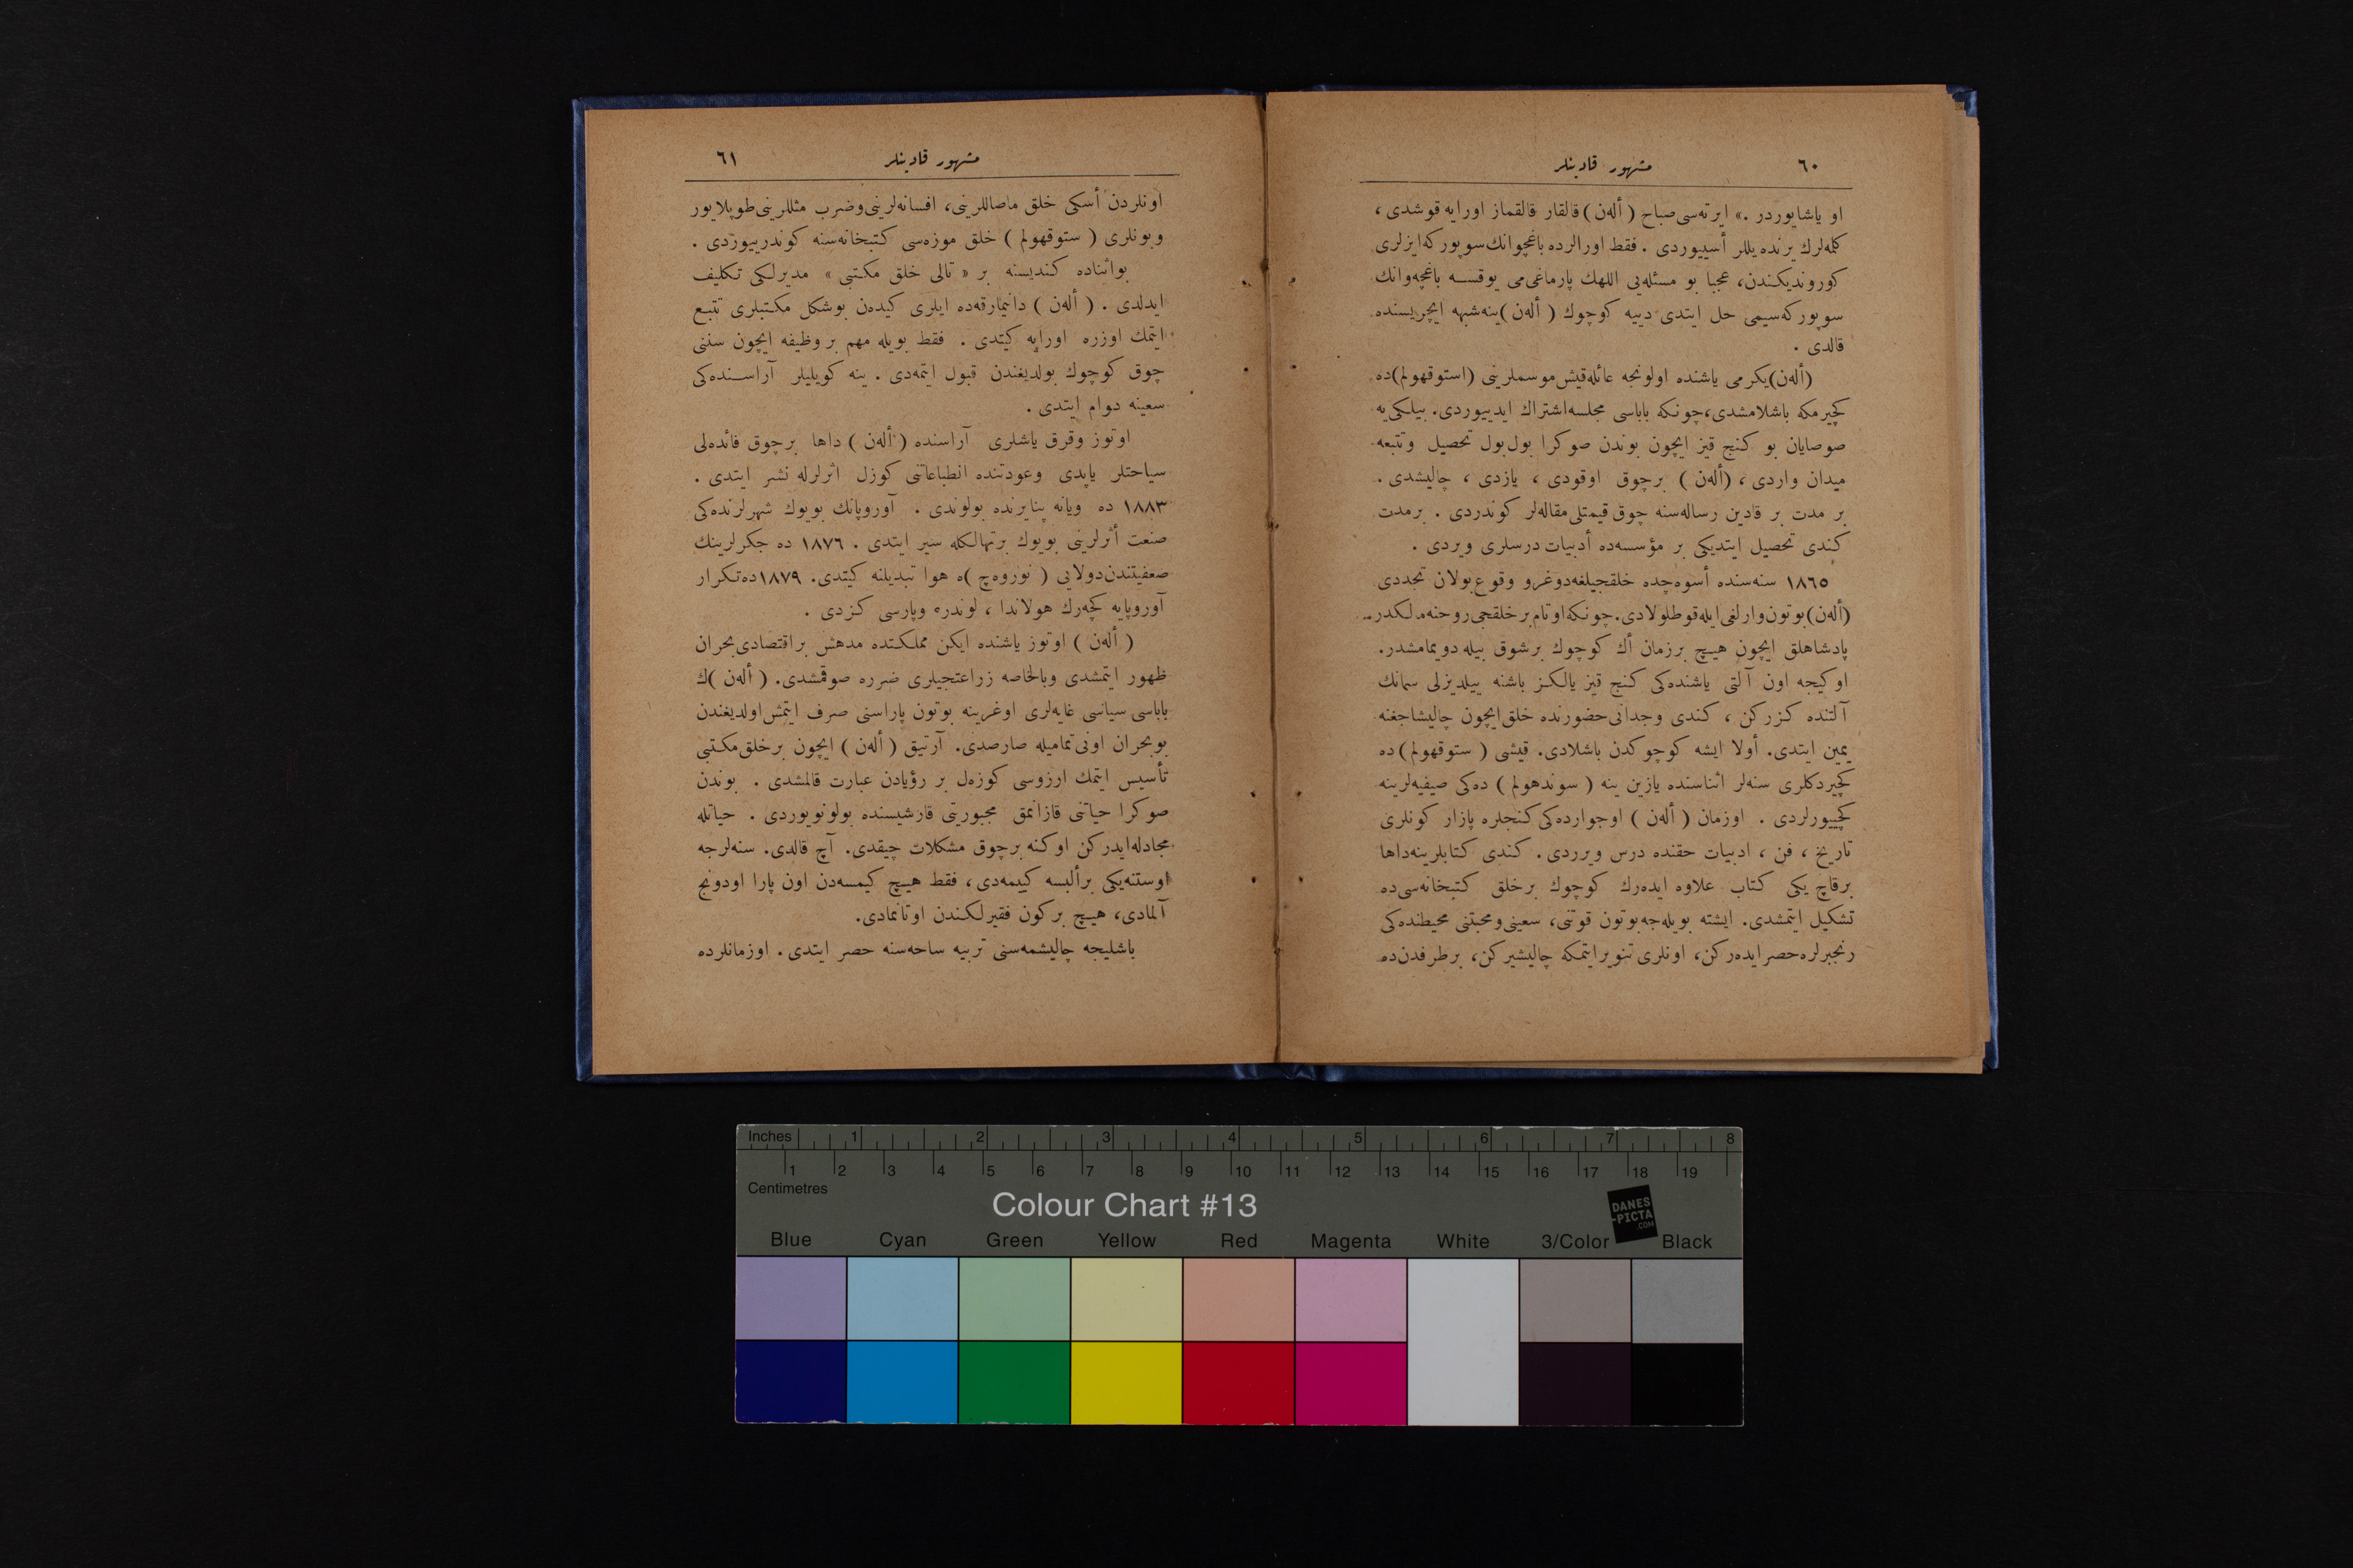 ٦٠
مشهور قادینلر
او یاشایوردر .» ایرته‌سی صباح (أله‌ن) قالقار قالقماز اورایه قوشدی ،
کله‌لرك یرنده یللر أسییوردی . فقط اورالرده باغچوانك سوپورکه ایزلری
کوروندیکندن، عجبا بو مسئله‌یی اللهك پارماغی‌می یوقسه باغچه‌وانك
سوپورکه‌سیمی حل ایتدی دییه کوچوك ( أله‌ن ) ینه شبهه ایچریسنده
قالدی .
(أله‌ن) یکرمی یاشنده اولونجه عائله قیش موسملرینی (استوقهولم) ده
کچیرمکه باشلامشدی، چونکه باباسی مجلسه اشتراك ایدییوردی. بیلکی یه
صوصایان بو کنج قیز ایچون بوندن صوکرا بول بول تحصیل وتتبعه
میدان واردی ، (أله‌ن ) برچوق اوقودی ، یازدی ، چالیشدی .
بر مدت بر قادین رساله‌سنه چوق قیمتلی مقاله‌لر کوندردی . برمدت
کندی تحصیل ایتدیکی بر مؤسسه‌ده أدبیات درسلری ویردی .
١٨٦٥ سنه‌سنده أسوه‌چده خلقجیلغه دوغرو وقوع بولان تجددی
(أله‌ن) بوتون وارلغی ایله قوطلولادی. چونکه او تام برخلقجی روحنه مالکدر..
پادشاهلق ایچون هیچ برزمان أك کوچوك برشوق بیله دویمامشدر.
اوکیجه اون آلتی یاشنده‌کی کنج قیز یالکز باشنه ییلدیزلی سمانك
آلتنده کزرکن ، کندی وجدانی حضورنده خلق ایچون چالیشاجغنه
یمین ایتدی. أولا ایشه کوچوکدن باشلادی. قیشی ( ستوقهولم ) ده
کچیردکلری سنه‌لر اثناسنده یازین ینه ( سوندهولم ) ده‌کی صیفیه‌لرینه
کچییورلردی . اوزمان ( أله‌ن ) اوجوارده‌کی کنجلره پازار کونلری
تاریخ ، فن ، ادبیات حقنده درس ویرردی . کندی کتابلرینه داها
برقاچ یکی کتاب علاوه ایده‌رك کوچوك برخلق کتبخانه‌سی ده
تشکیل ایتمشدی. ایشته بویله‌جه بوتون قوتنی، سعینی و محبتنی محیطنده‌کی
رنجبرلره حصر ایده‌رکن، اونلری تنویر ایتمکه چالیشیرکن، برطرفدن ده
مشهور قادینلر
٦١
اونلردن أسکی خلق ماصاللرینی، افسانه‌لرینی وضرب مثللرینی طوپلایور
وبونلری ( ستوقهولم ) خلق موزه‌سی کتبخانه‌سنه کوندرییوردی .
بواثناده کندیسنه بر « تالی خلق مکتبی » مدیرلکی تکلیف
ایدلدی . ( أله‌ن ) دانیمارقه‌ده ایلری کیدەن بوشکل مکتبلری تتبع
ایتمك اوزره اورایه کیتدی . فقط بویله مهم بر وظیفه ایچون سننی
چوق کوچوك بولدیغندن قبول ایتمه‌دی . ینه کویلیلر آراسنده‌کی
سعینه دوام ایتدی .
اوتوز وقرق یاشلری آراسنده ( أله‌ن ) داها برچوق فائده‌لی
سیاحتلر یاپدی وعودتنده انطباعاتنی کوزل اثرلرله نشر ایتدی .
١٨٨٣ ده ویانه پنایرنده بولوندی . آوروپانك بویوك شهرلرنده‌کی
صنعت أثرلرینی بویوك برتهالکله سیر ایتدی . ١٨٧٦ ده جکرلرینك
ضعفیتندن دولایی ( نوروه‌چ )ه هوا تبدیلنه کیتدی. ١٨٧٩ ده تکرار
آوروپایه کچه‌رك هولاندا ، لوندره وپارسی کزدی .
( أله‌ن ) اوتوز یاشنده ایکن مملکتده مدهش براقتصادی بحران
ظهور ایتمشدی وبالخاصه زراعتجیلری ضرره صوقمشدی. ( أله‌ن )ك
باباسی سیاسی غایه‌لری اوغرینه بوتون پاراسنی صرف ایتمش اولدیغندن
بوبحران اونی تمامیله صارصدی. آرتیق ( أله‌ن ) ایچون برخلق مکتبی
تأسیس ایتمك ارزوسی کوزه‌ل بر رؤیادن عبارت قالمشدی . بوندن
صوکرا حیاتنی قازانمق مجبوریتی قارشیسنده بولونویوردی . حیاتله
مجادله ایدرکن اوکنه برچوق مشکلات چیقدی. آچ قالدی. سنه‌لرجه
اوستنه یکی برألبسه کییمه‌دی ، فقط هیچ کیمسه‌دن اون پارا اودونج
آلمادی، هیچ برکون فقیرلکندن اوتانمادی.
باشلیجه چالیشمه‌سنی تربیه ساحه‌سنه حصر ایتدی . اوزمانلرده
Inches 1 2 3 4 5 6 7 8
1 2 3 4 5 6 7 8 9 10 11 12 13 14 15 16 17 18 19
Centimetres
Colour Chart #13
DANES
-PICTA
.COM
Blue Cyan Green Yellow Red Magenta White 3/Color Black